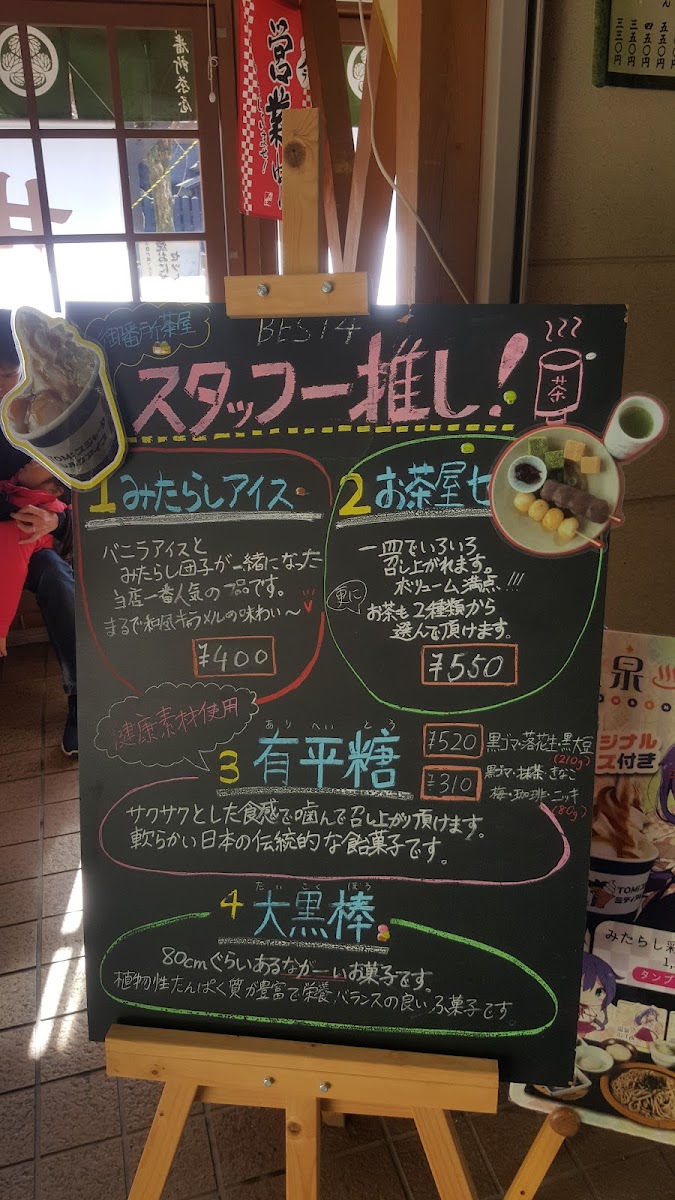 番所茶屋
営業中
五五〇円
四五〇円
三五〇円
三三〇円
御番所茶屋
BEST4
スタッフ一推し!
茶
1 みたらしアイス
バニラアイスと
みたらし団子が一緒になった
当店一番人気の一品です。
まるで和風キャラメルの味わい〜
¥400
2 お茶屋セ
一皿でいろいろ
召し上がれます。
ボリューム満点!!!
更に
お茶も2種類から
選んで頂けます。
¥550
健康素材使用
ありへいとう
3 有平糖
¥520 黒ゴマ・落花生・黒大豆
(210g)
¥310 黒ゴマ・抹茶・きなこ
梅・珈琲・ニッキ
(80g)
サクサクとした食感で噛んで召し上がり頂けます。
軟らかい日本の伝統的な飴菓子です。
たいこくぼう
4 大黒棒
80cmぐらいあるながーいお菓子です。
植物性たんぱく質が豊富で栄養バランスの良いふ菓子です。
泉
ジナル
ス付き
TOMI
みたらし
タンブ